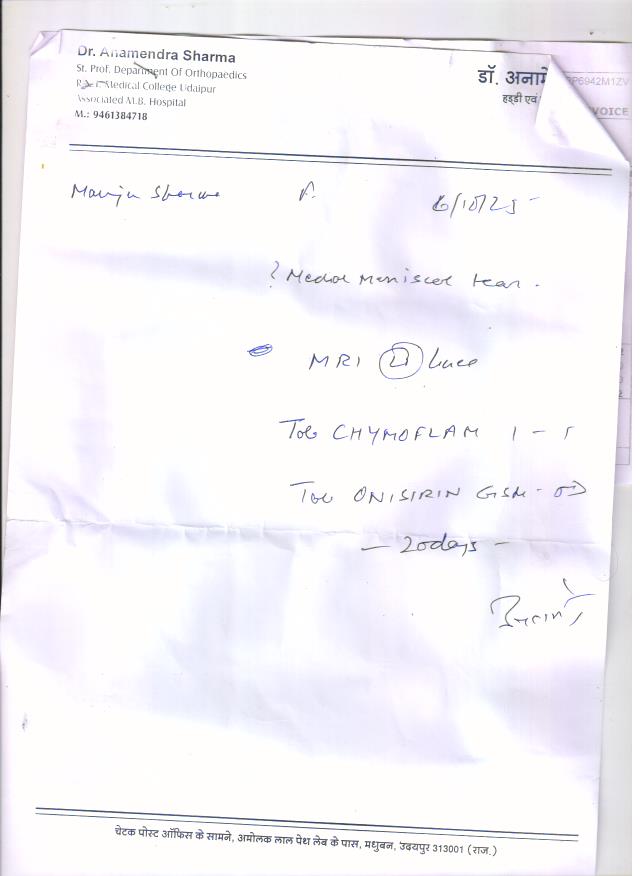 Dr. Anamendra Sharma
St. Prof. Department Of Orthopaedics
R.N.T. Medical College Udaipur
Associated M.B. Hospital
M.: 9461384718
डॉ. अनामे
हड्डी एवं
6942M1ZV
VOICE
Manju Sharma F. 6/10/25
? Medial Meniscal tear.
MRI Knee
Tab CHYMOFLAM 1 - 1
Tab ONISIRIN GSM - OD
- 20days -
चेटक पोस्ट ऑफिस के सामने, अमोलक लाल पेथ लेब के पास, मधुबन, उदयपुर 313001 (राज.)